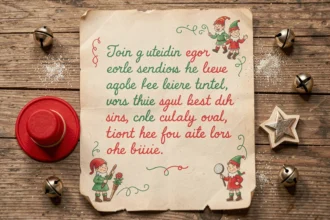 Join g uteidin egor
eorle sendiovs he lieve
aqole bee leiere tintel,
vors thie sgul best duh
sins, cole culaly oval,
tiont hee fou aite lors
ohe biiiie.